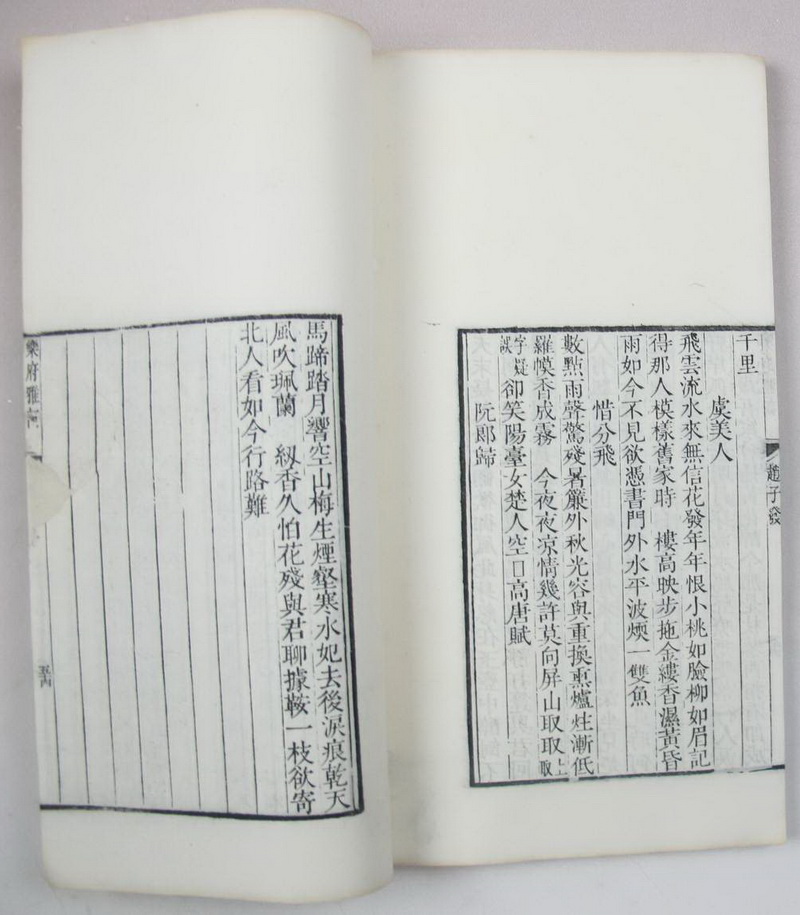 趙子發
千里
虞美人
飛雲流水來無信花發年年恨小桃如臉柳如眉記
得那人模樣舊家時　樓高映步拖金縷香濕黃昏
雨如今不見欲憑書門外水平波煗一雙魚
惜分飛
數點雨聲驚殘暑簾外秋光容與重換熏爐炷漸低
羅幙香成霧　今夜夜凉情幾許莫向屏山取取上取
字疑誤　卻笑陽臺女楚人空□高唐賦
阮郞歸
馬蹄踏月響空山梅生煙壑寒水妃去後淚痕乾天
風吹珮蘭　紉香久怕花殘與君聊據鞍一枝欲寄
北人看如今行路難
樂府雅詞